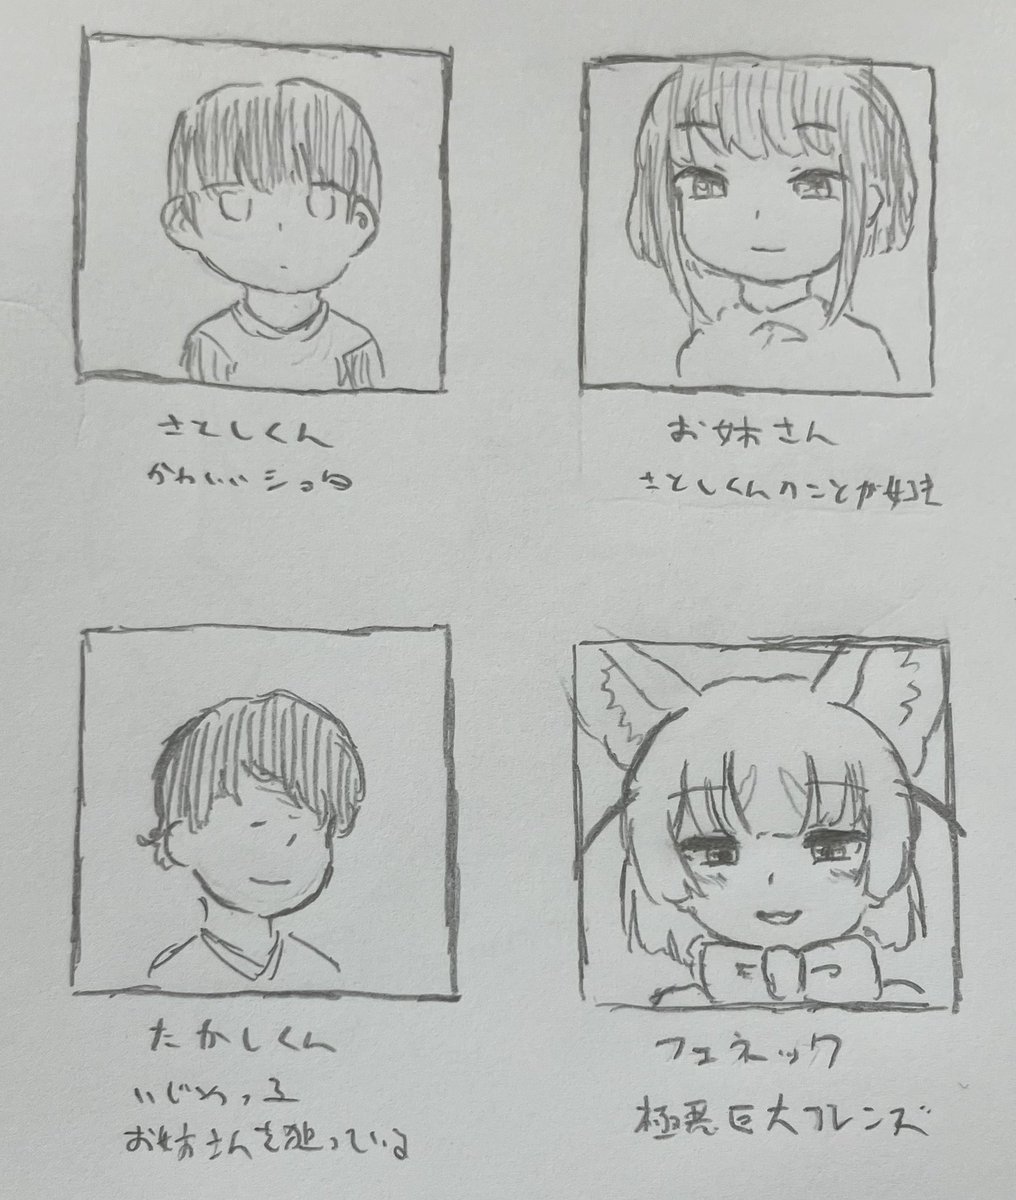 さとしくん
かわいいショタ
お姉さん
さとしくんのことが好き
たかしくん
いじめっ子
お姉さんを狙っている
フェネック
極悪巨大フレンズ